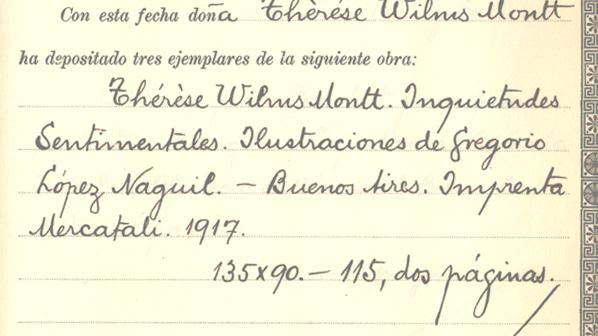 Con esta fecha doña Thérèse Wilms Montt
ha depositado tres ejemplares de la siguiente obra:
Thérèse Wilms Montt. Inquietudes
Sentimentales. Ilustraciones de Gregorio
López Naguil. - Buenos Aires. Imprenta
Mercatali. 1917.
135x90.- 115, dos páginas.